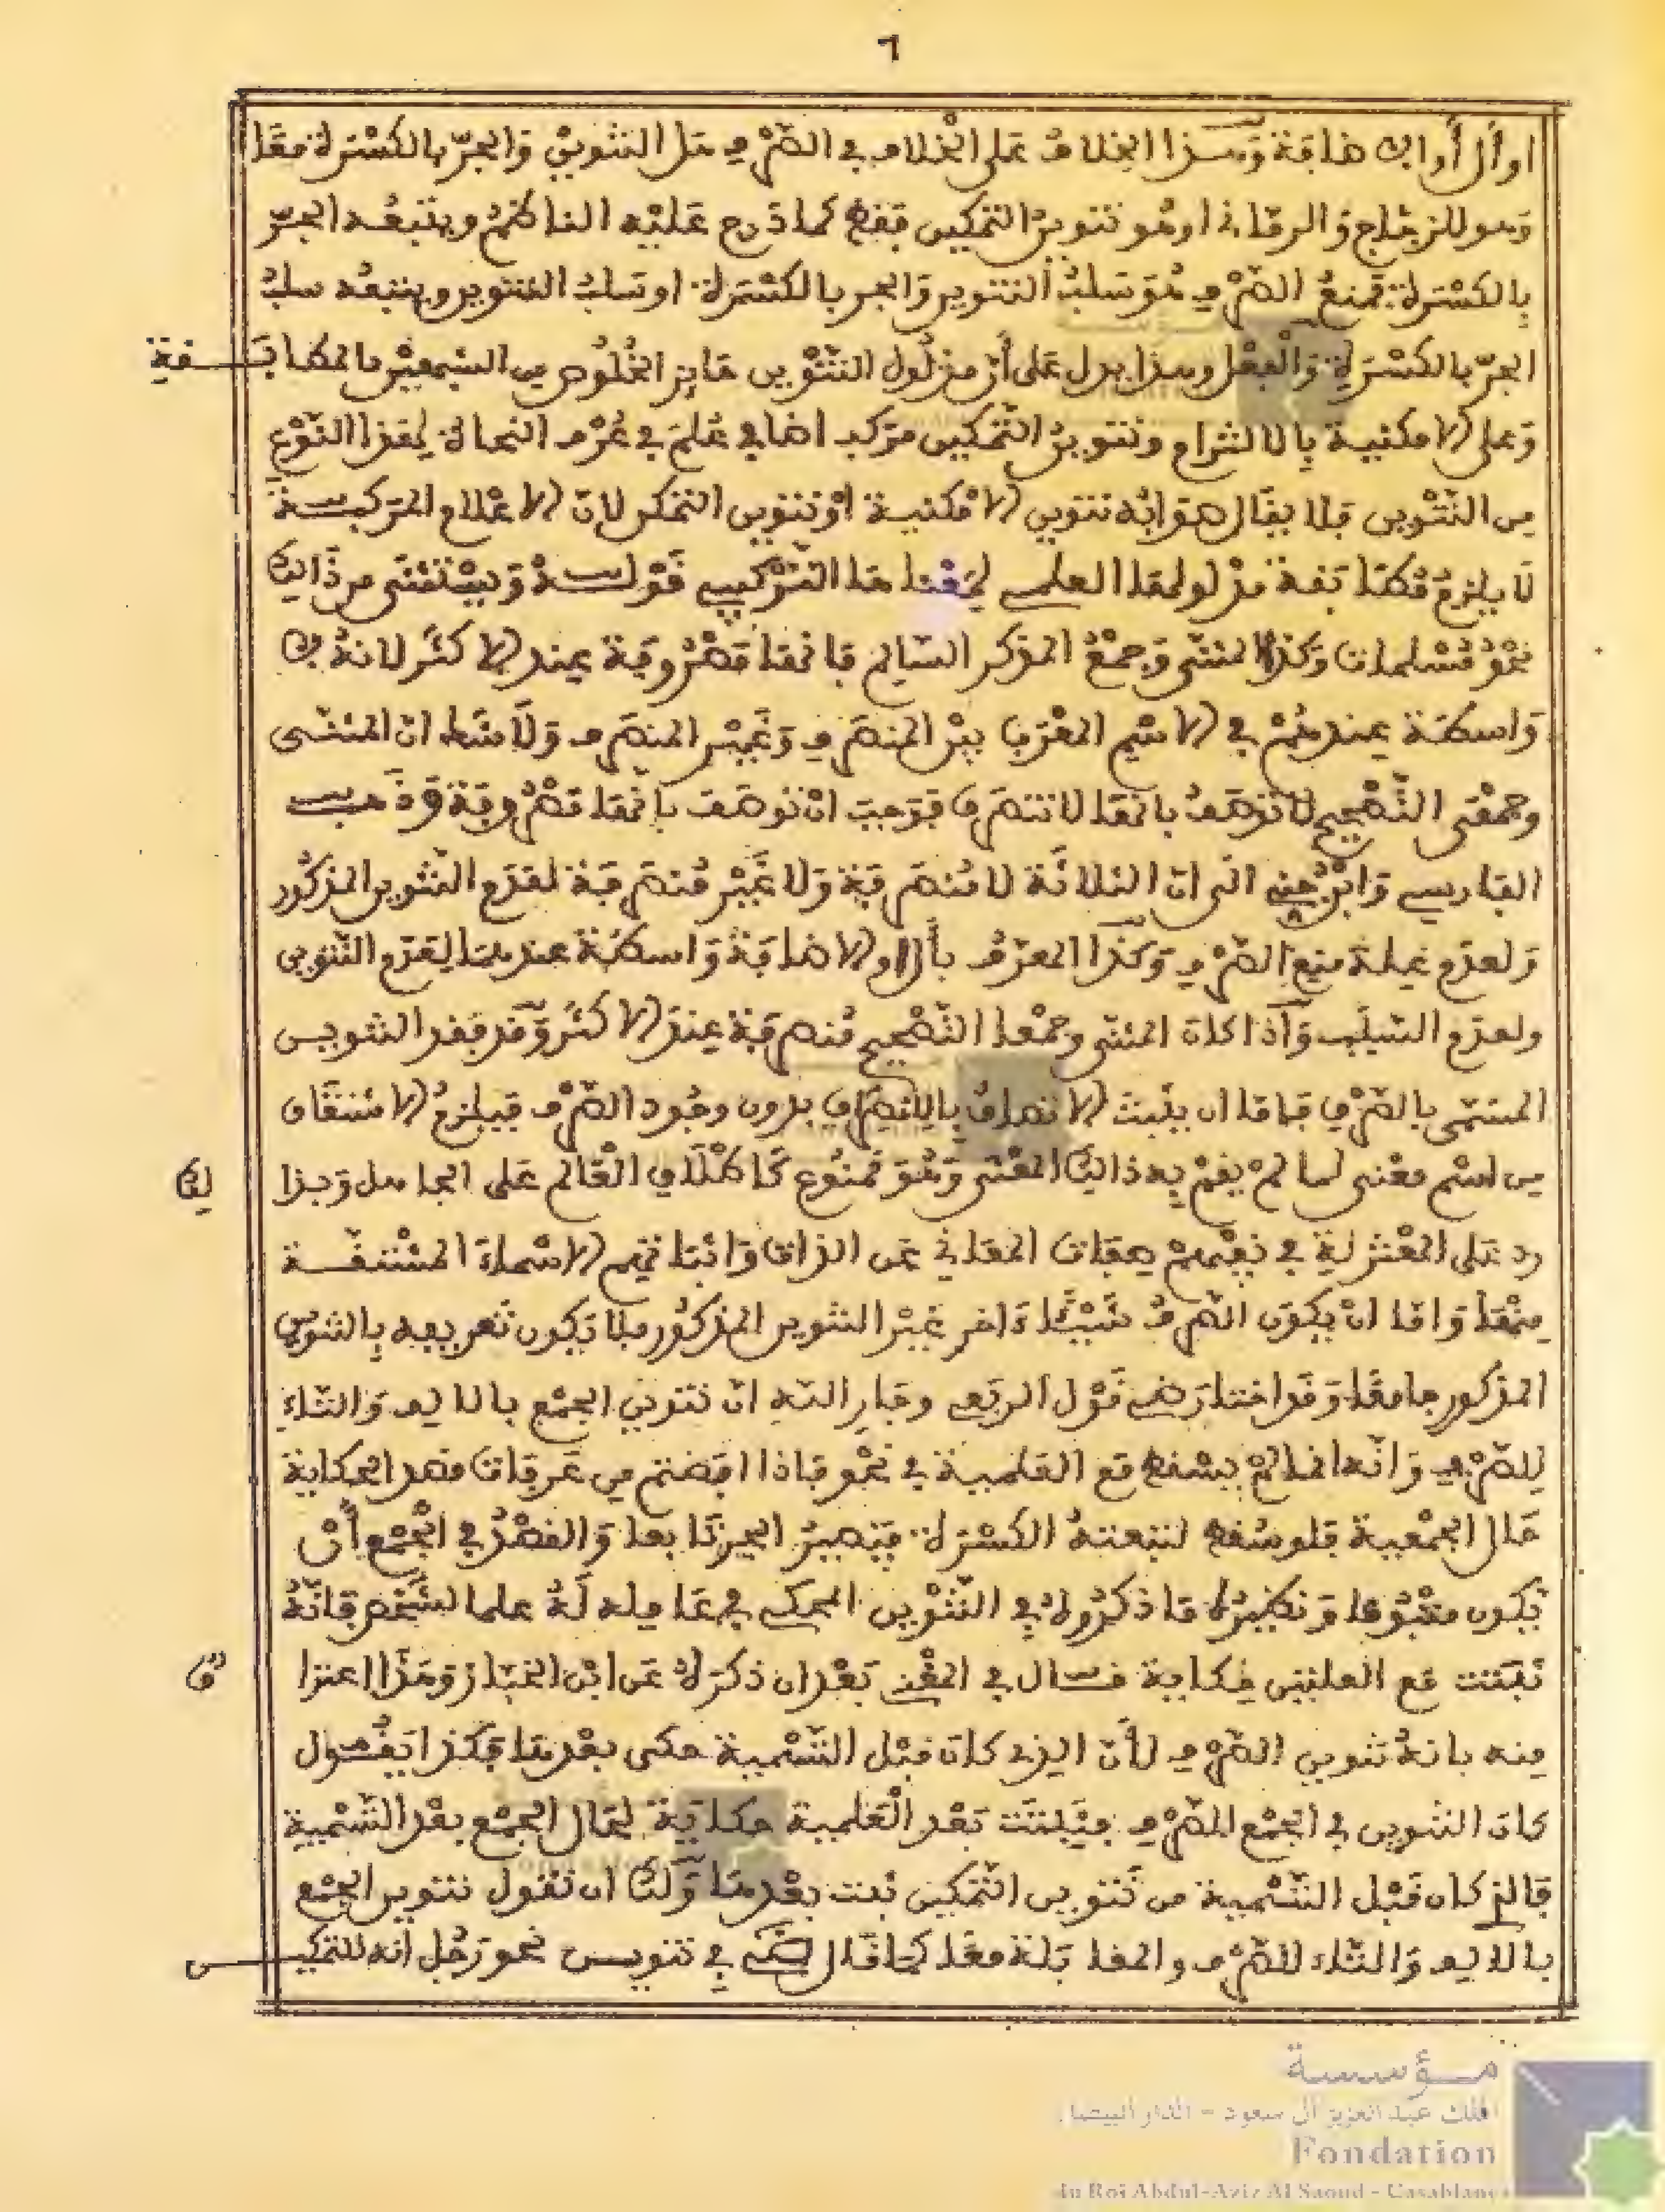 ٦
او أل أو الاضافة وهذا الخلاف على الخلاف في الصرف هل التنوين والجر بالكسرة معا
وهو للزجاج والرماني او هو تنوين التمكين فقط كما درج عليه الناظم ويتبعه الجر
بالكسرة فمنع الصرف هو سلب التنوين والجر بالكسرة او سلب التنوين ويتبعه سلب
الجر بالكسرة والفعل وهذا يدل على أن مدلول التنوين هاين الخلوص من الشبهين بالمطابقة
وعلى الامكنية بالالتزام وتنوين التمكين مركب اضافي علم في عرف النحاة لهذا النوع
من التنوين فلا يقال هو انه تنوين الامكنية او تنوين التمكن لان الاعلام المركبة
لا يلزم مطابقة مدلولها العلمي لمعناها التركيبي قوله ويستثنى من ذالك
نحو مسلمات وكذا المثنى وجمع المذكر السالم فانها مصروفة عند الاكثر لانه لا
واسطة عندهم في الاسم المعرب بين المنصرف وغير المنصرف ولا شك ان المثنى
وجمعي التصحيح لا توصف بانها لا تنصرف فوجب ان توصف بانها مصروفة وذهب
الفارسي وابن جني الى ان الثلاثة لا منصرفة ولا غير منصرفة لعدم التنوين المذكور
ولعدم علة منع الصرف وكذا المعرف بأل او الاضافة واسطة عندهما لعدم التنوين
ولعدم السلب واذا كان المثنى وجمعا التصحيح منصرفة عند الاكثر وقد فقد التنوين
المسمى بالصرف فاما ان يثبت الانصراف بدون وجود الصرف فيلزم الاشتقاق
من اسم معنى لما لم يقم به ذالك المعنى وهو ممنوع كاطلاق العالم على الجاهل وبذا لك
رد على المعتزلة في نفيهم صفات المعاني عن الذات واثباتهم الاسماء المشتقة
منها واما ان يكون الصرف شيئا ءاخر غير التنوين المذكور فلا يكون تعريفه بالتنوين
المذكور جامعا وقد اختار رضي قول الربعي وجار الله ان تنوين الجمع بالالف والتاء
للصرف وانه انما لم يسقط مع العلمية في نحو فاذا افضتم من عرفات قصد الحكاية
حال الجمعية فلو سقط لتبعته الكسرة فيصير الجر تابعا والقصد في الجمع أن
يكون متبوعا ونظيره ما ذكروه في التنوين المحكي في عاملة له علما لشخص فانه
ثبتت مع العلتين حكاية قال في المغني بعد ان ذكره عن ابن الخباز وهذا اعترا ف
منه بانه تنوين الصرف لأن الذي كان قبل التسمية حكى بعدها فكذا يقول
كان التنوين في الجمع للصرف فيثبت بعد العلمية حكاية لحال الجمع بعد التسمية
فالذي كان قبل التسمية من تنوين التمكين ثبت بعدها ولك ان تقول تنوين الجمع
بالالف والتاء للصرف والمقابلة معا كما قال رضي في تنوين نحو رجل انه للتمكين
مؤسسة
الملك عبد العزيز آل سعود - الدار البيضاء
Fondation
du Roi Abdul-Aziz Al Saoud - Casablanca